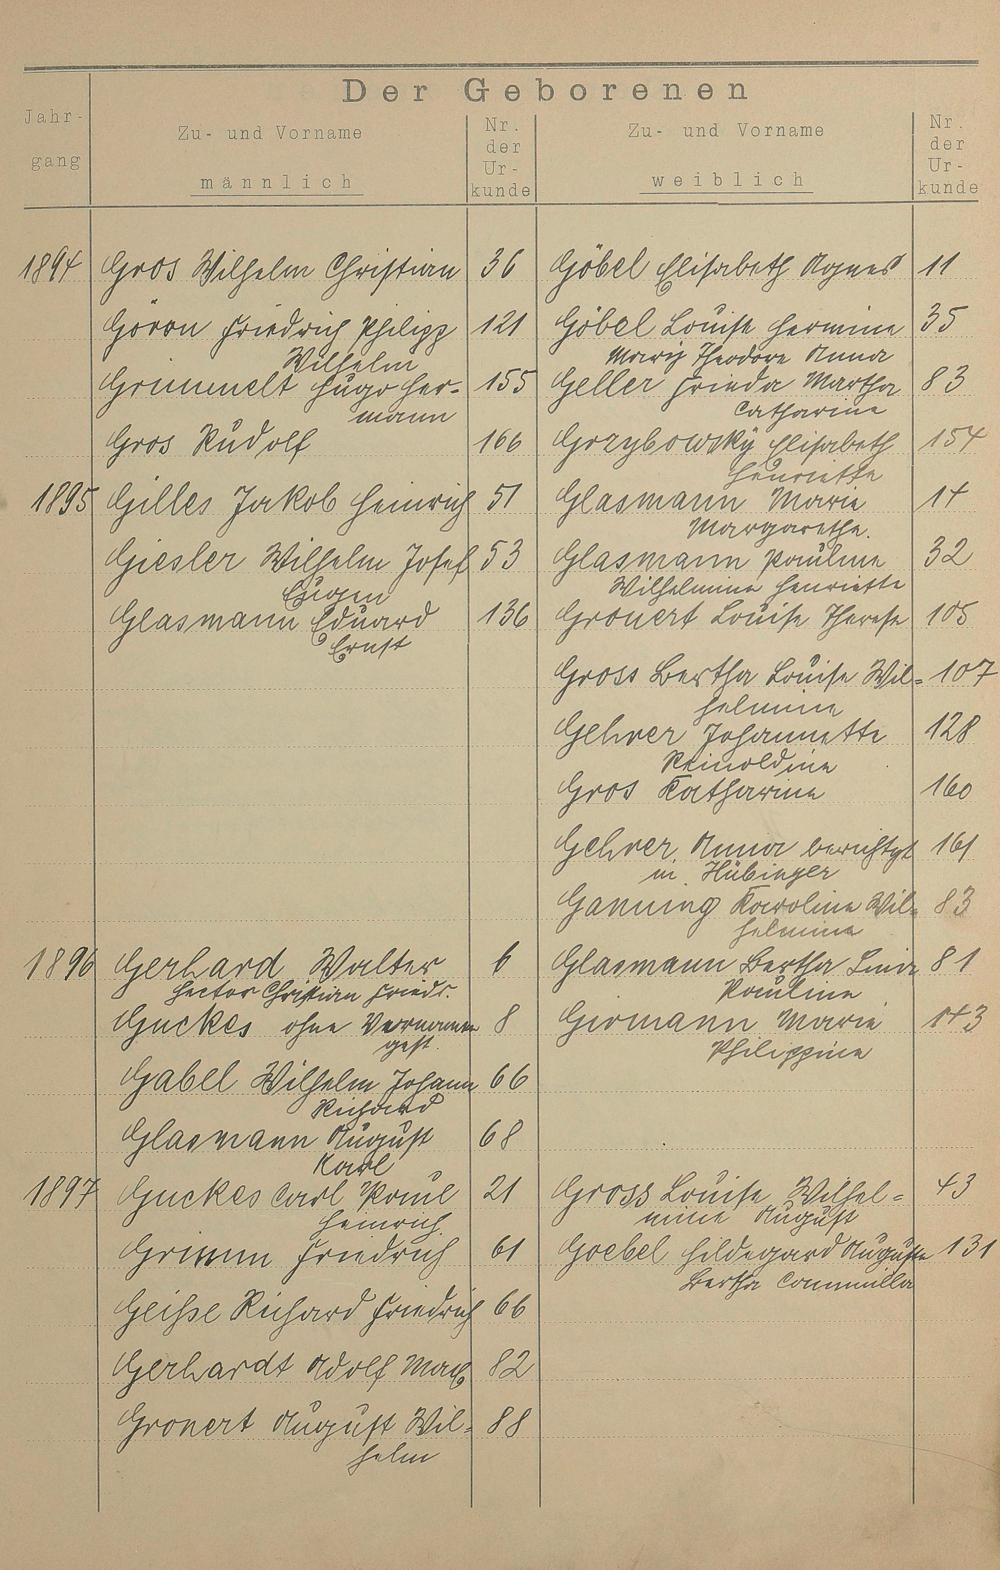 Der Geborenen
Jahr-
gang
Zu- und Vorname
männlich
Nr.
der
Ur-
kunde
Zu- und Vorname
weiblich
Nr.
der
Ur-
kunde
1894 Gros Wilhelm Christian 36 Göbel Elisabeth Agnes 11
Friedrich Philipp 121 Göbel Louise Hermine 35
Wilhelm Marie Theodore Anna
Grimmelt Hugo Her- 155 Geller Frieda Martha 83
mann Catharine
Gros Rudolf 166 Grzybowsky Elisabeth 154
Henriette
1895 Gilles Jakob Heinrich 51 Glasmann Marie 14
Margarethe.
Giesler Wilhelm Josef 53 Glasmann Pauline 32
Eugen Wilhelmine Henriette
Glasmann Eduard 136 Gronert Louise Therese 105
Ernst
Gross Bertha Louise Wil= 107
helmine
Gehrer Johannette 128
Reinoldine
Gros Katharine 160
Gehrer Anna berichtgt 161
in Hübinger
Ganning Karoline Wil= 83
helmine
1896 Gerhard Walter 6 Glasmann Bertha Lina 81
Hector Christian Friedr. Pauline
Guckes ohne Vornamen 8 Girmann Marie 143
gest. Philippine
Gabel Wilhelm Johann 66
Richard
Glasmann August 68
Karl
1897 Guckes Carl Paul 21 Gross Louise Wilhel= 43
Heinrich mine August
Grimm Friedrich 61 Goebel Hildegard Auguste 131
Bertha
Geiße Richard Friedrich 66
Gerhardt Adolf Max 82
Gronert August Wil= 88
helm